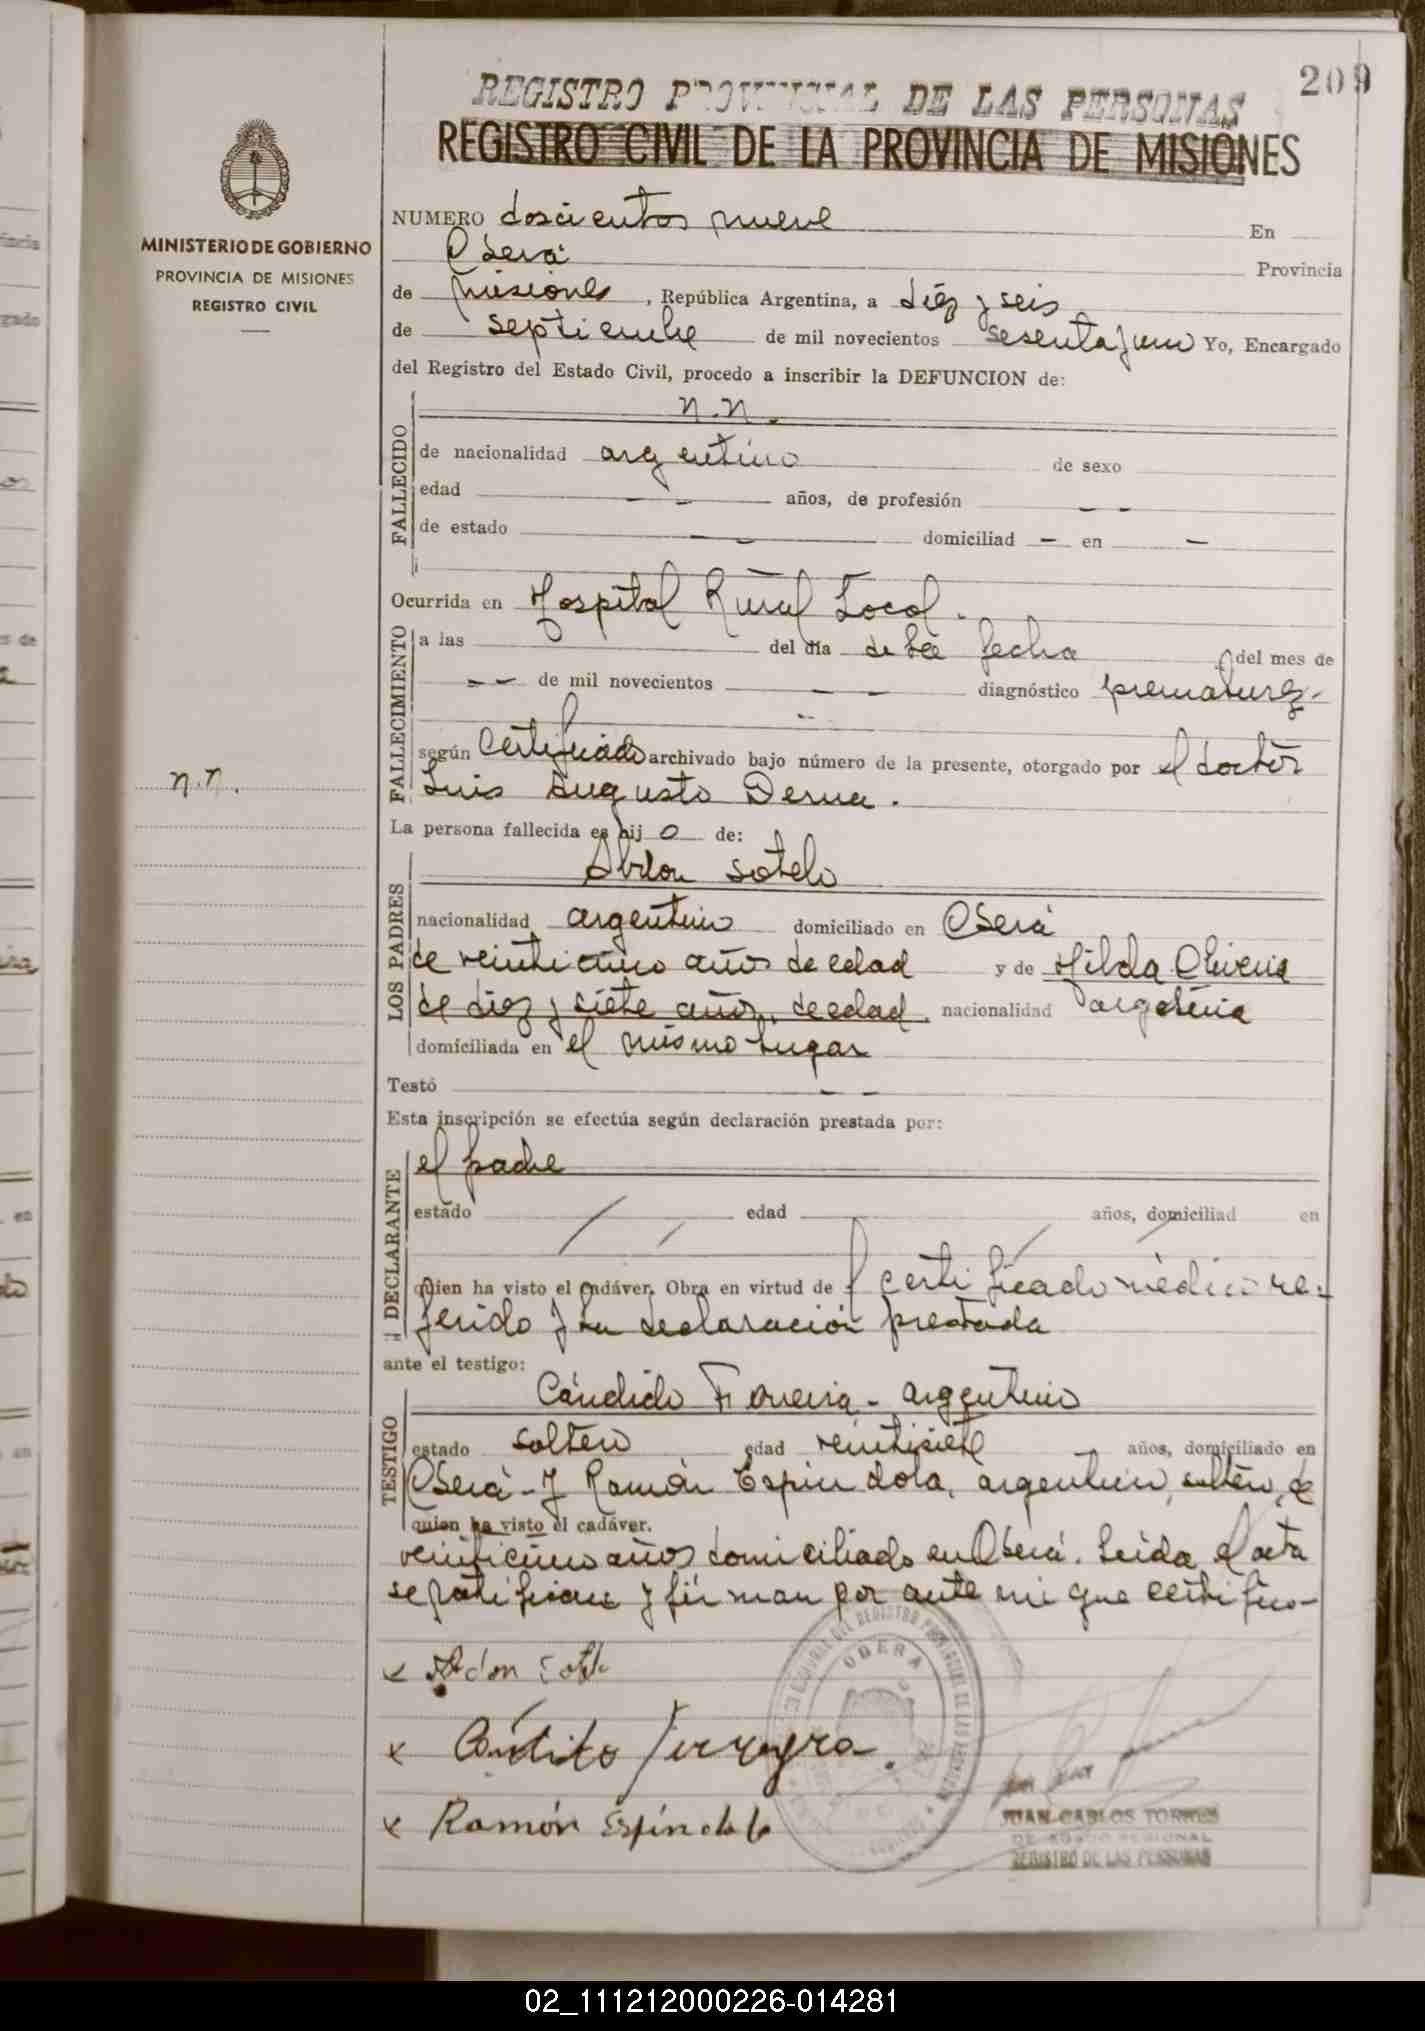 209
REGISTRO PROVINCIAL DE LAS PERSONAS
REGISTRO CIVIL DE LA PROVINCIA DE MISIONES
MINISTERIO DE GOBIERNO
PROVINCIA DE MISIONES
REGISTRO CIVIL
NUMERO doscientos nueve En
Oberá Provincia
de Misiones, República Argentina, a diez y seis
de septiembre de mil novecientos sesenta y uno Yo, Encargado
del Registro del Estado Civil, procedo a inscribir la DEFUNCION de:
FALLECIDO
n.n.
de nacionalidad argentino de sexo
edad — — años, de profesión — —
de estado — — domiciliad — en —
Ocurrida en Hospital Rural Local.
FALLECIMIENTO
a las del día de la fecha del mes de
— — de mil novecientos — — diagnóstico prematurez.
según certificado archivado bajo número de la presente, otorgado por el doctor
n.n.
Luis Augusto Derna.
La persona fallecida es hijo de:
LOS PADRES
Abdon Sotelo
nacionalidad argentino domiciliado en Oberá
de veinticinco años de edad y de Hilda Oliveira
de diez y siete años de edad. nacionalidad argentina
domiciliada en el mismo lugar
Testó — —
Esta inscripción se efectúa según declaración prestada por:
DECLARANTE
el padre
estado edad años, domiciliad en
quien ha visto el cadáver. Obra en virtud de certificado médico re-
ferido y su declaración prestada
ante el testigo:
TESTIGO
Cándido Ferreira - argentino
estado soltero edad veintisiete años, domiciliado en
Oberá - y Ramón Espíndola, argentino, soltero, de
quien ha visto el cadáver.
veinticinco años domiciliado en Oberá. Leida el acta
se ratifican y firman por ante mi que certifico-
x Abdon Sotelo
x Cándito Ferreyra.
x Ramón Espíndola
OBERA
JUAN CARLOS TORRES
DELEGADO REGIONAL
REGISTRO DE LAS PERSONAS
02_111212000226-014281